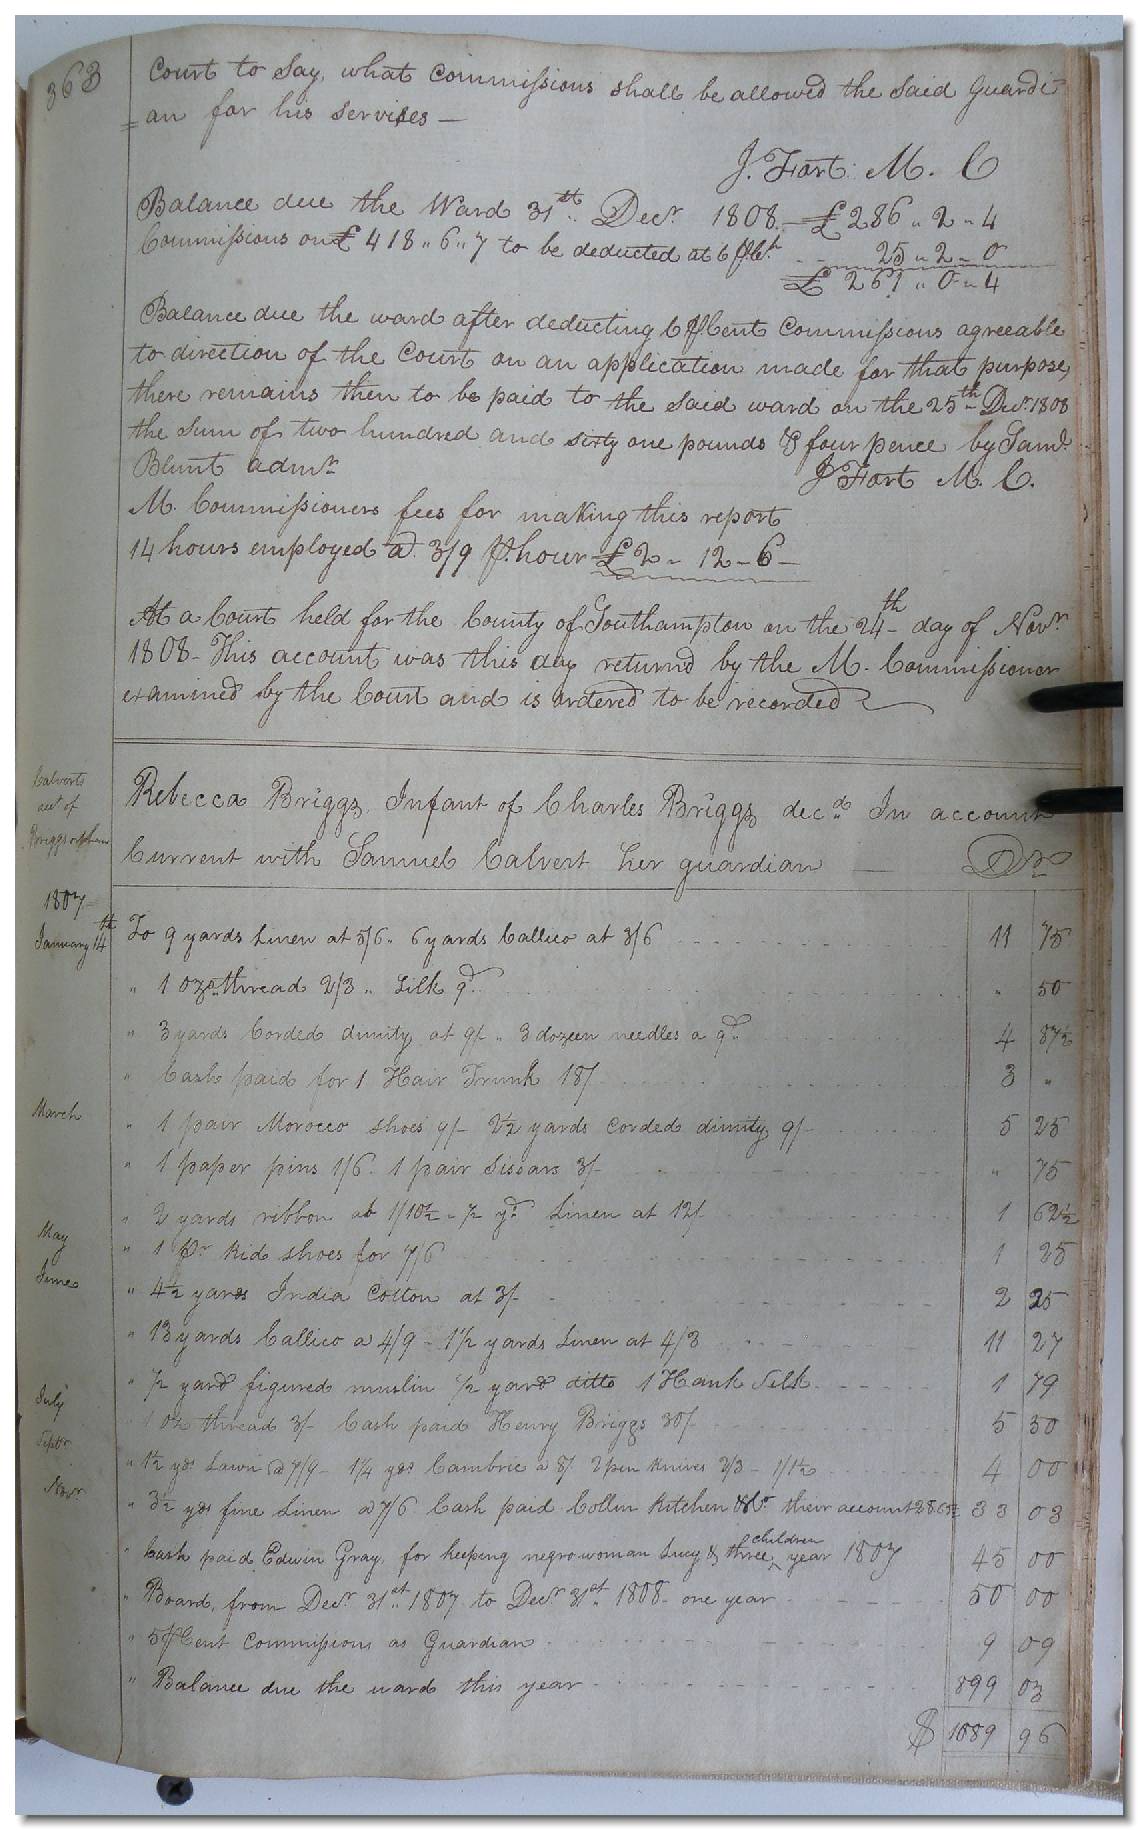 363
Court to Say, what Commissions shall be allowed the said Guardi
=an for his servises —
J. Fort M. C
Balance due the Ward 31st Decr 1808 — £286 " 2 " 4
Commissions on £418 " 6 " 7 to be deducted at 6 p Ct - - 25 " 2 - 0
£ 261 " 0 " 4
Balance due the ward after deducting 6 p Cent Commissions agreeable
to direction of the Court on an application made for that purpose,
there remains then to be paid to the said ward on the 25th Decr 1808
the Sum of two hundred and sixty one pounds & four pence by Saml
Blunt admr
J Fort M. C.
M. Commissioners fees for making this report
14 hours employed @ 3/9 p. hour £2 - 12 - 6 -
At a Court held for the County of Southampton on the 24th day of Novr
1808 - This account was this day returnd by the M. Commissioner
examined by the Court and is ordered to be recorded
Calverts
act of
Briggs orphan
Rebecca Briggs, Infant of Charles Briggs decd In account
Current with Samuel Calvert her guardian — Dr
1807
January 14th To 9 yards Linen at 5/6 " 6 yards Callico at 3/6 11 75
" 1 oz thread 2/3 " Silk 9d " 50
" 3 yards Corded dimity at 9/ " 3 dozen needles a 9d 4 87½
" Cash paid for 1 Hair Trunk 18/ 3 "
March " 1 pair Morocco shoes 9/- 2½ yards Corded dimity 9/- 5 25
" 1 paper pins 1/6 - 1 pair Sissars 3/- " 75
" 2 yards ribbon at 1/10½ - ½ yd Linen at 12/ 1 62½
May " 1 pr Kid shoes for 7/6 1 25
June " 4½ yards India Cotton at 3/- 2 25
" 13 yards Callico a 4/9 - 1½ yards Linen at 4/3 11 27
" ½ yard figured muslin ½ yard ditto 1 Hank Silk 1 79
July " 1 oz thread 3/- Cash paid Henry Briggs 30/- 5 50
Septr " 1½ yds Lawn @ 7/9 - 1¼ yds Cambric a 8/ 2 pen Knives 2/3 - 1/1½ 4 00
Novr " 3½ yds fine Linen a 7/6 Cash paid Collin Kitchen & Co their account 33 03
" Cash paid Edwin Gray, for keeping negro woman Lucy & three children year 1807 45 00
" Board, from Decr 31st 1807 to Decr 31st 1808 - one year 50 00
" 5 p Cent Commissions as Guardian 9 09
" Balance due the ward this year 899 03
$ 1089 96